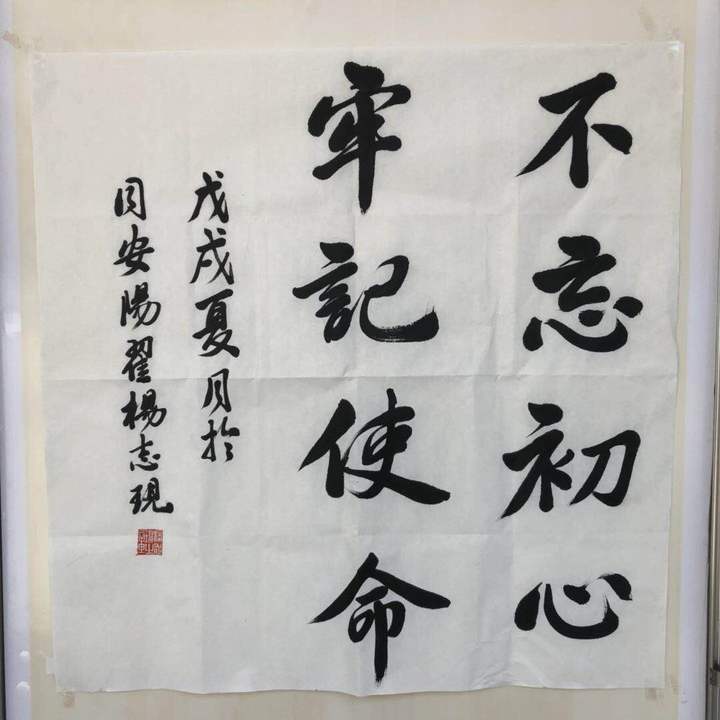 不忘初心
牢記使命
戊戌夏月於
安陽翟楊志現